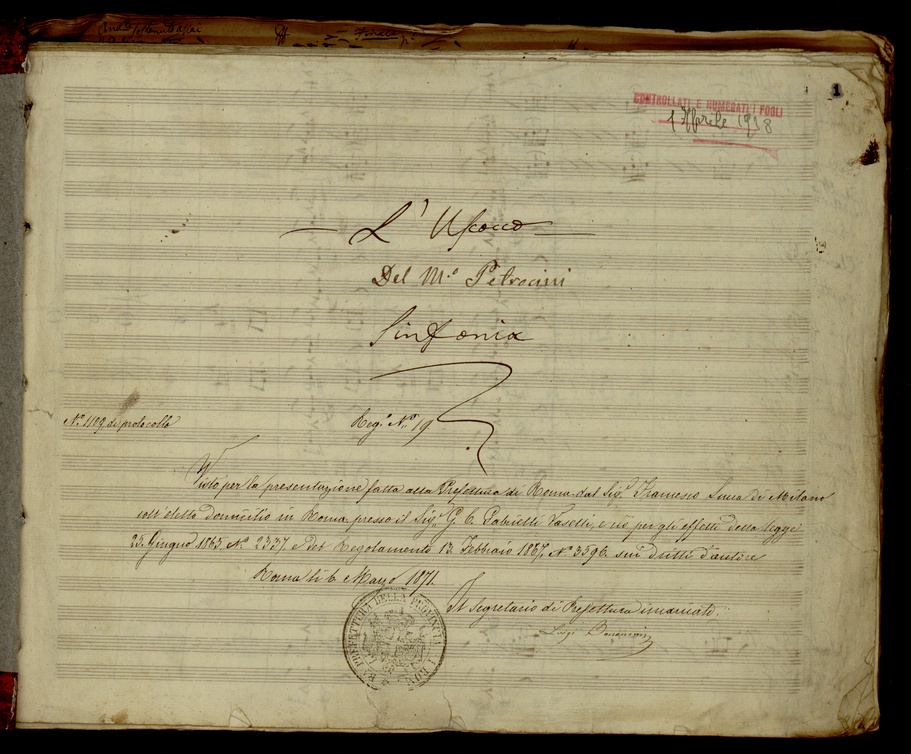 Finale
1
CONTROLLATI E NUMERATI I FOGLI
1 Aprile 1918
L'Uscocco
Del M.o Petrocini
Sinfonia
N.o 1109 di protocollo
Reg.o N.o 19
Visto per la presentazione fatta alla Prefettura di Roma dal Sig.r Francesco Lucca di Milano
coll'eletto domicilio in Roma presso il Sig.r G. C. e ciò per gli effetti della legge
25. Giugno 1865. N.o 2337. e del Regolamento 13. Febbraio 1867. N.o 3596. sui dritti d'autore
Roma li 6. Marzo 1871.
Il Segretario di Prefettura incaricato
Luigi
R. PREFETTURA DELLA PROVINCIA DI ROMA